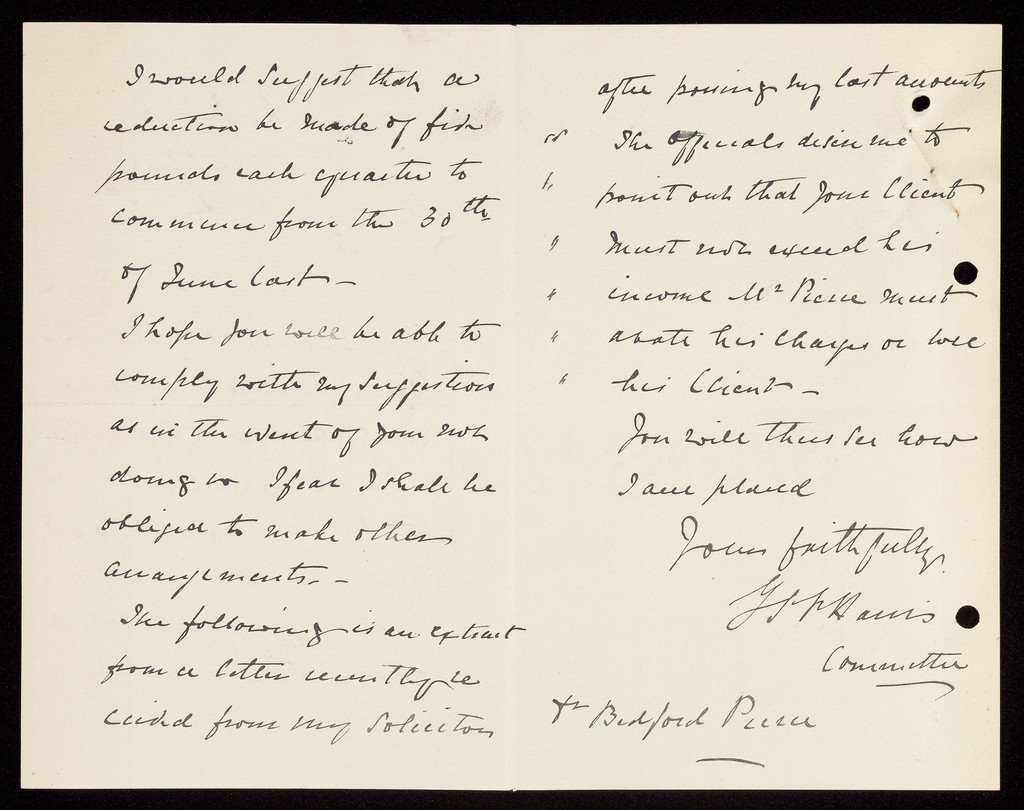 I would suggest that a
reduction be made of five
pounds each quarter to
commence from the 30th
of June last –
I hope you will be able to
comply with my suggestion
as in the event of your not
doing so I fear I shall be
obliged to make other
arrangements. –
The following is an extract
from a letter recently re
ceived from my Solicitors
after passing my last accounts
" The officials desire me to
" point out that your Client
" must not exceed his
" income Mr Pierce must
" abate his charges or lose
" his Client –
You will thus see how
I am placed
Yours faithfully
Harris
Committee
Dr Bedford Pierce